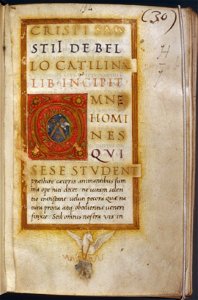 (30)
CRISPI SAL
STII DE BEL
LO CATILINA
LIB· INCIPIT
OMNE
HOMI
NES
QVI
SESE STUDENT
praestare caeteris animantibus sum
ma ope niti decet: ne uitam silen
tio transigant ueluti pecora quae na
tura prona atq; obedientia uentri
finxit. Sed omnis nostra uis in